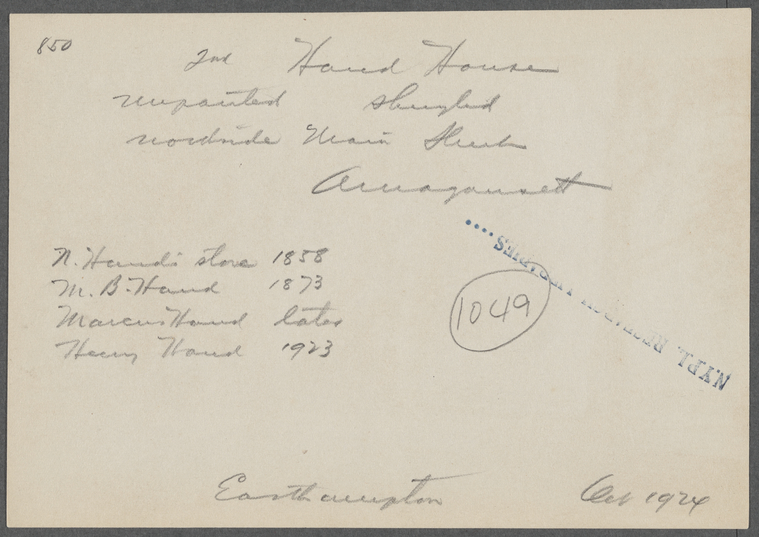 850
2nd Hand House
unpainted shingled
northside Main Street
Amagansett
N. Hand's store 1858
M. B. Hand 1873
Marcus Hand later
Henry Hand 1923
1049
N.Y.P.L. RESEARCH LIBRARIES
Easthampton Oct 1924